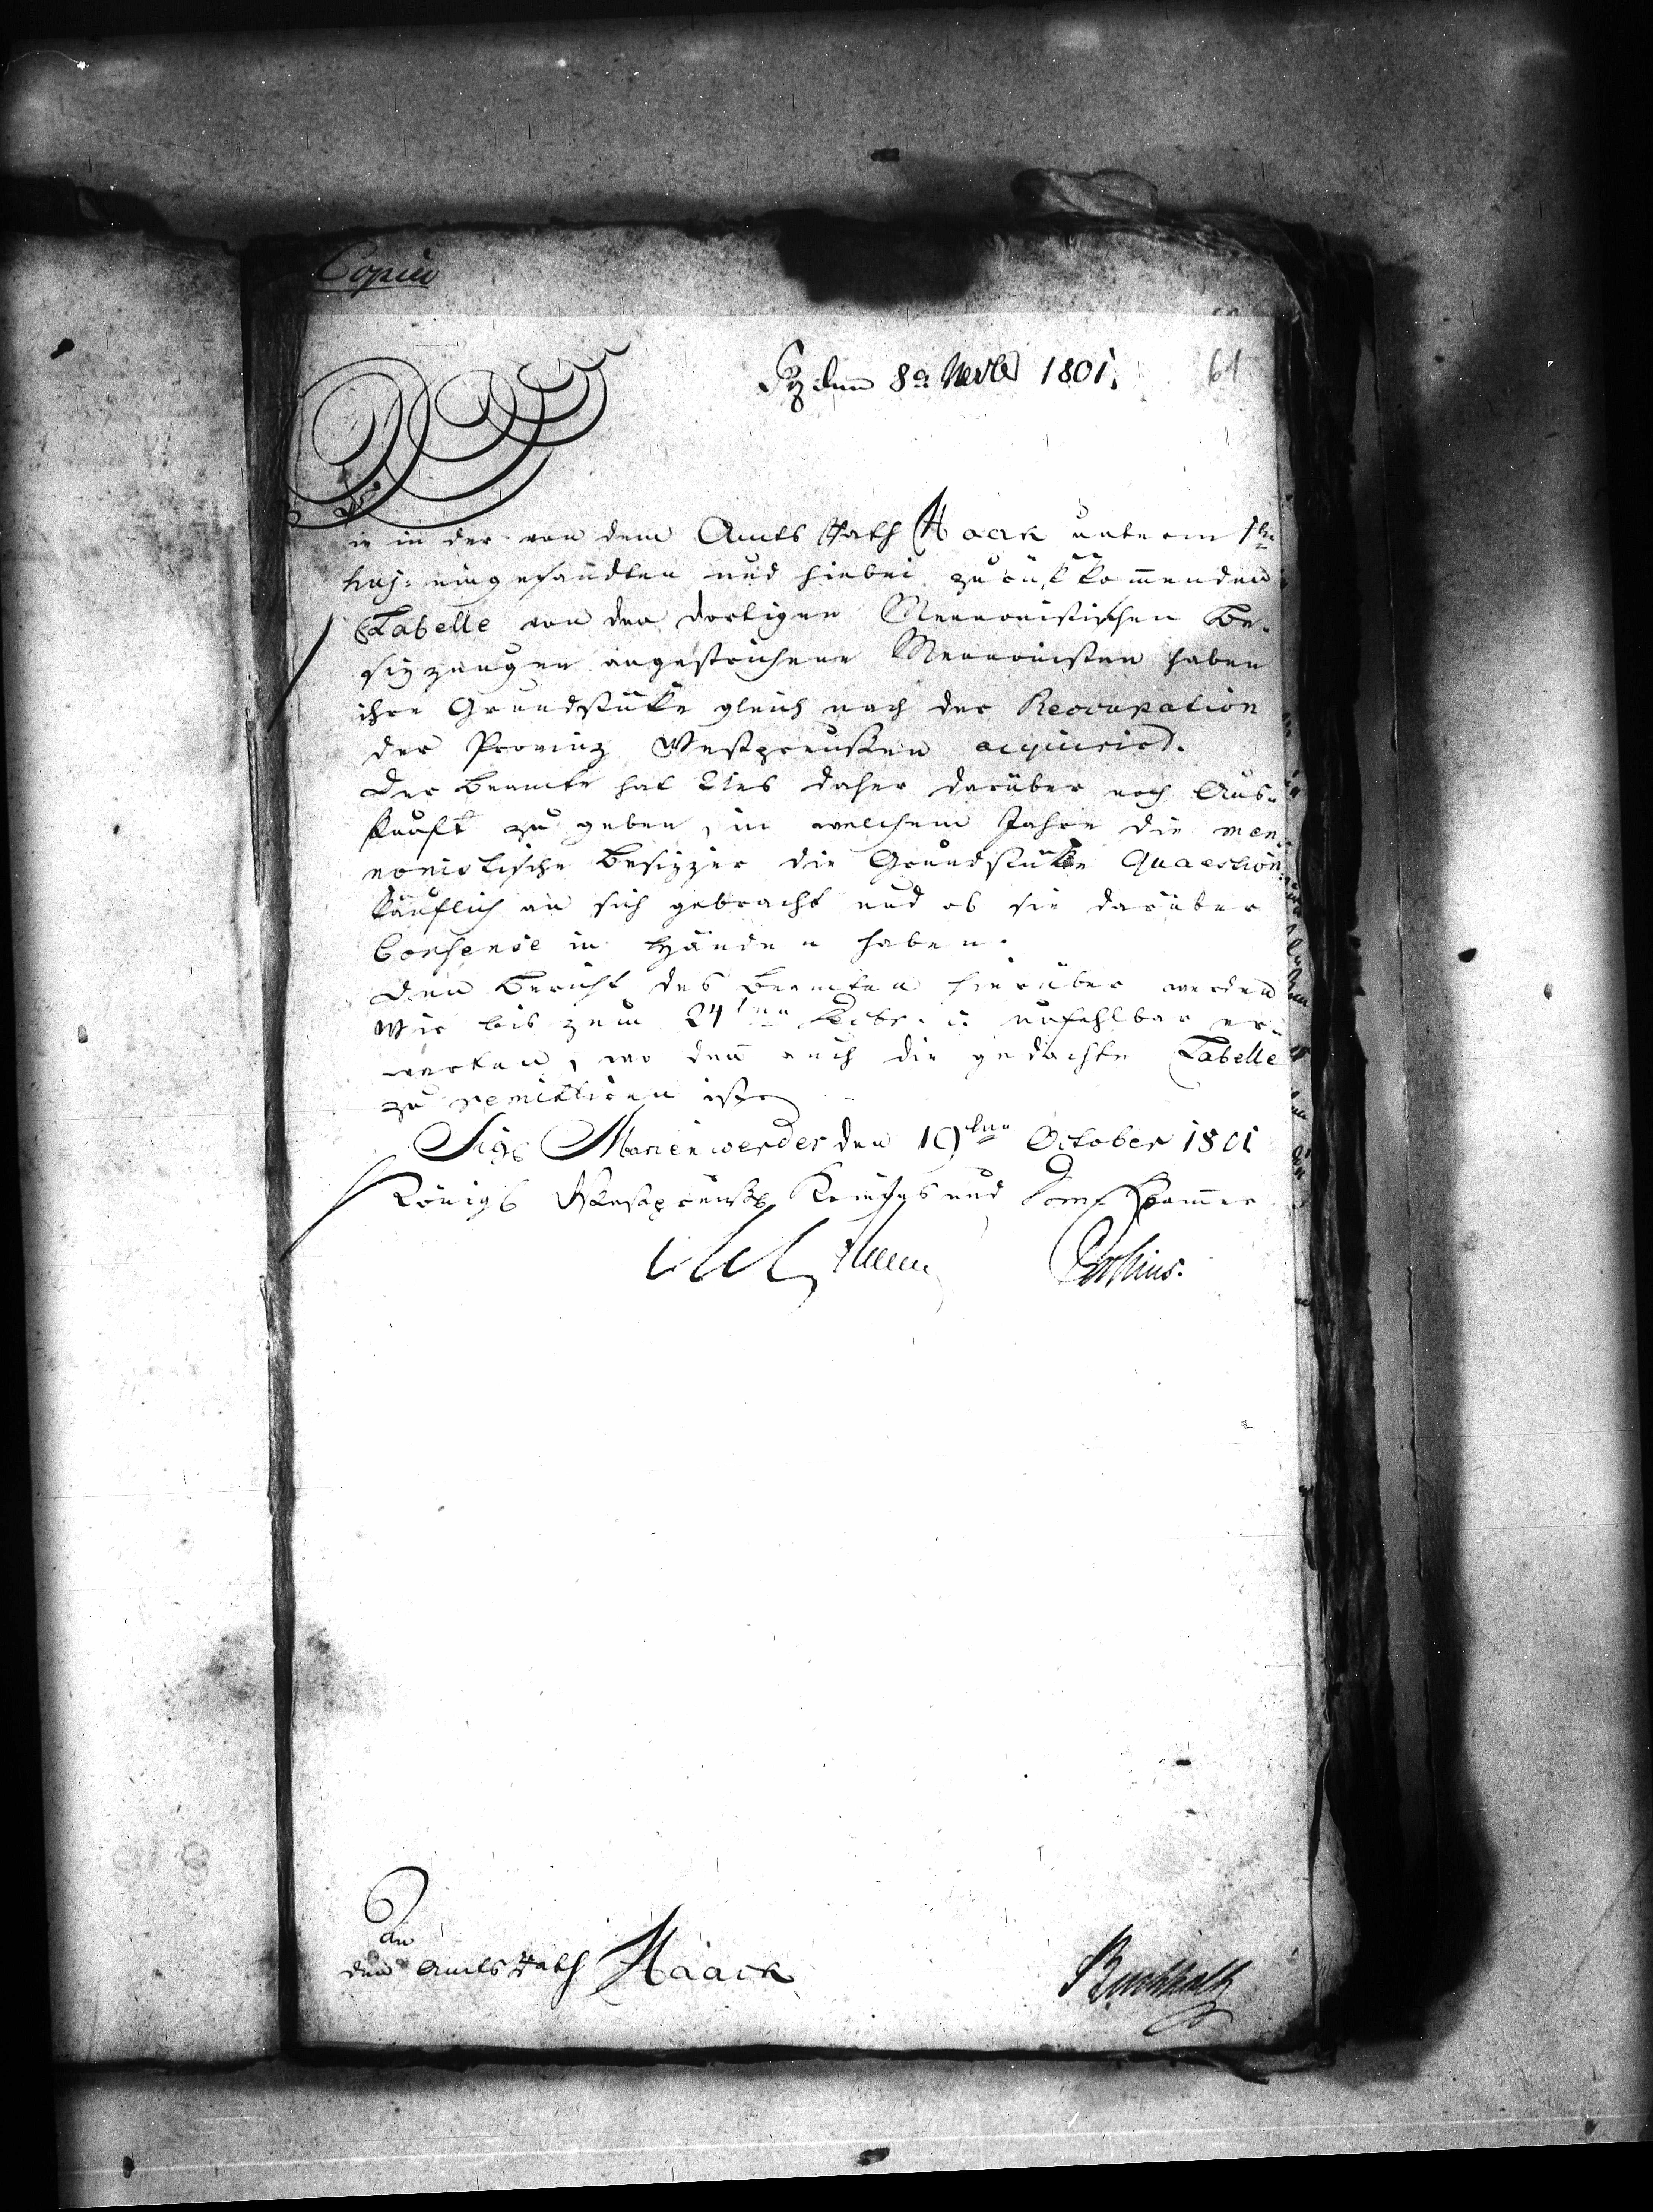 Copia
den 8n Novbr 1801.
61
Die in der von dem Amts Rath Haack unterm 1ten
huj: eingesandten und hiebei zurükkommenden
Tabelle von den dortigen Mennonistischen Be-
sizzungen angestrichene Mennonisten haben
ihre Grundstükke gleich nach der Reoccupation
der Provinz Westpreußen acquirirt.
Der Beamte hat daher darüber noch Aus-
kunft zu geben, in welchem Jahre die men-
nonistische Besizzer die Grundstükke Quaestion:
käuflich an sich gebracht und ob sie darüber
Consense in Händen haben.
Den Bericht des Beamten hierüber werden
Wir bis zum 24ten unfehlbar er-
warten, wo denn auch die gedachte Tabelle
zu remittiren ist.
Sig: Marienwerder den 19ten October 1801
Königl Westpreuß Krieges und Dom: Kammer
An
den Amts Rath Haack
Buchholtz